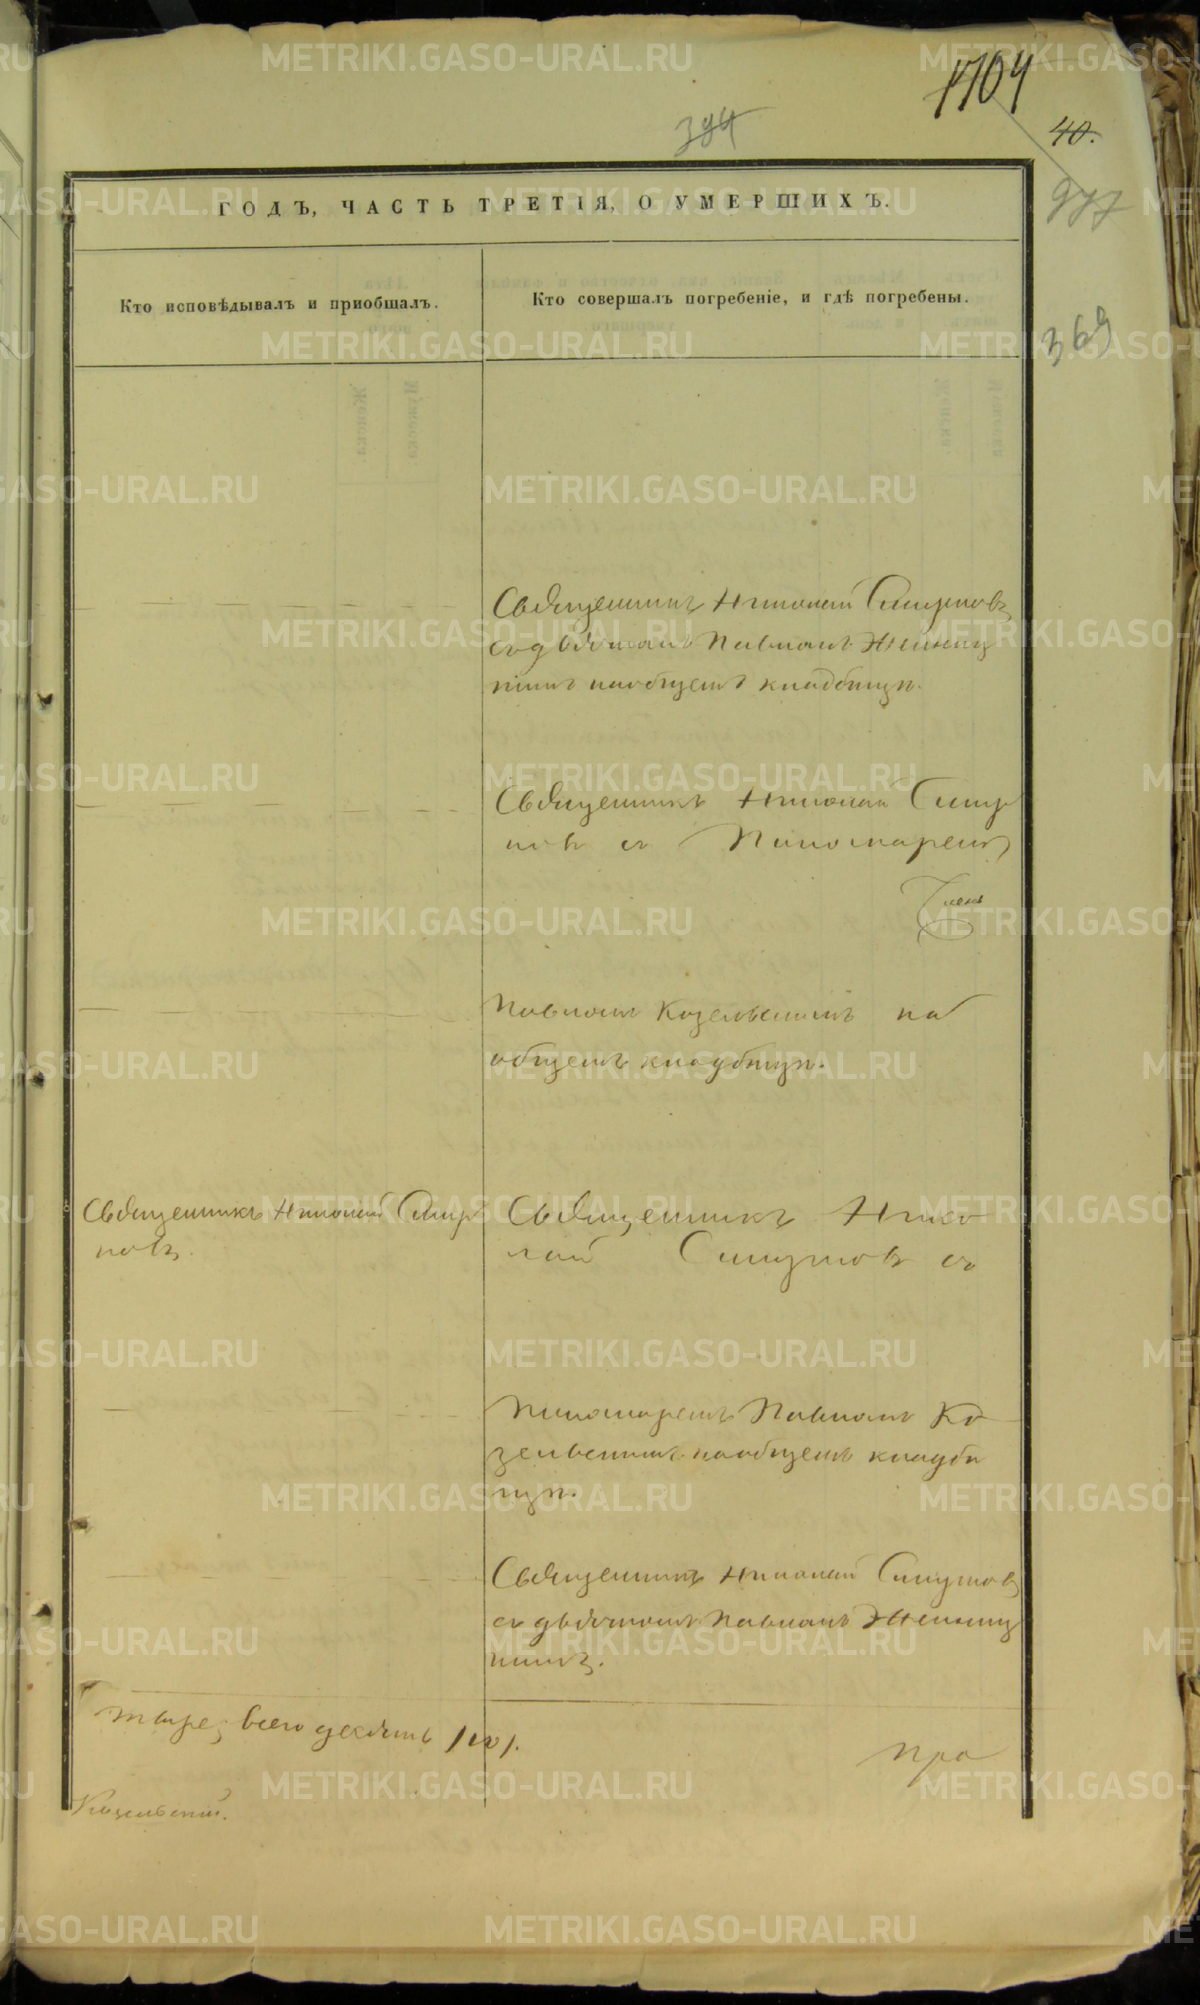 1704
394
40.
977
369
ГОДЪ, ЧАСТЬ ТРЕТІЯ, О УМЕРШИХЪ.
Кто исповѣдывалъ и приобщалъ.
Кто совершалъ погребеніе, и гдѣ погребены.
Священникъ Николай Смирновъ
съ дьячкомъ Павломъ
на общемъ кладбищѣ.
Священникъ Николай Смир
новъ съ Пономаремъ
Членъ
Павломъ Козельскимъ на
общемъ кладбищѣ.
Священникъ Николай Смир
новъ.
Священникъ Нико
лай Смирновъ съ
Пономаремъ Павломъ Ко
зельскимъ на общемъ кладби
щѣ.
Священникъ Николай Смирновъ
съ дьячкомъ Павломъ
тыре, всего десять /10/.
про
Козельскій.
METRIKI.GASO-URAL.RU